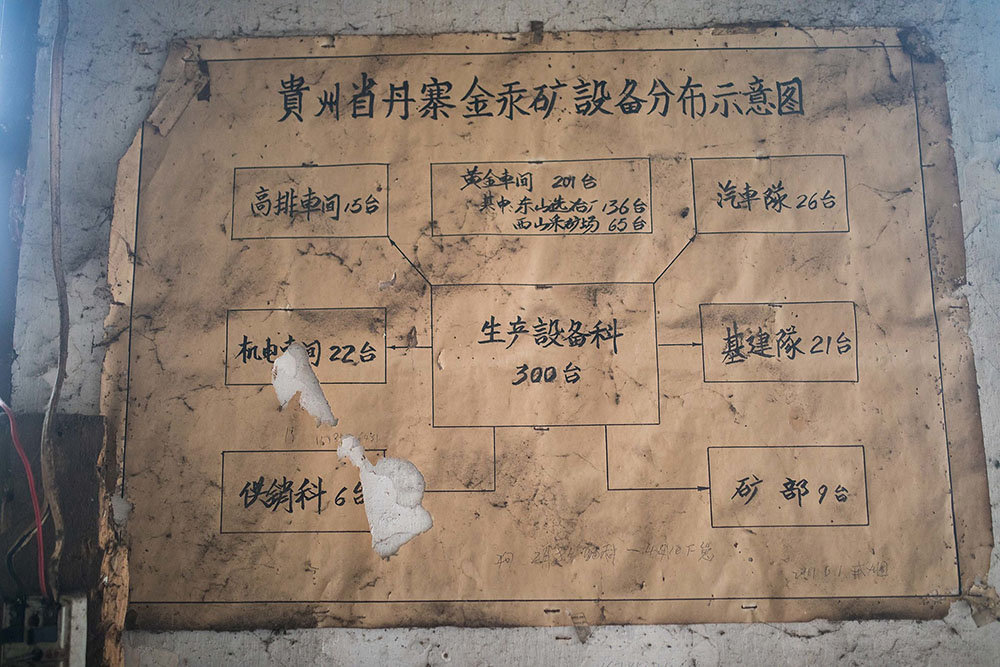 貴州省丹寨金汞矿設备分布示意图
高排車间15台
黄金車间 201台
其中:东山选冶厂136台
西山采矿场 65台
汽車隊26台
机电車间22台
生产設备科
300台
基建隊21台
供銷科6台
矿部9台